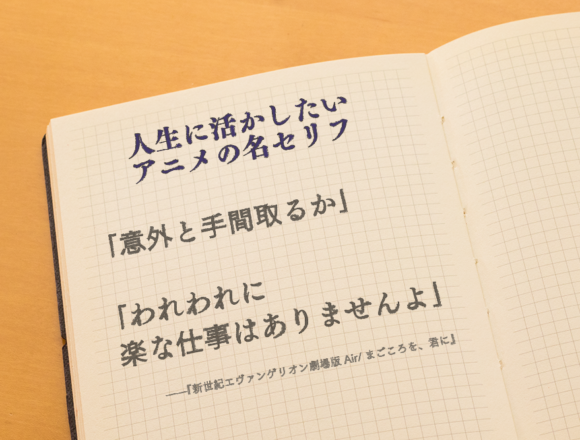 人生に活かしたい
アニメの名セリフ
「意外と手間取るか」
「われわれに
楽な仕事はありませんよ」
――『新世紀エヴァンゲリオン劇場版 Air/まごころを、君に』